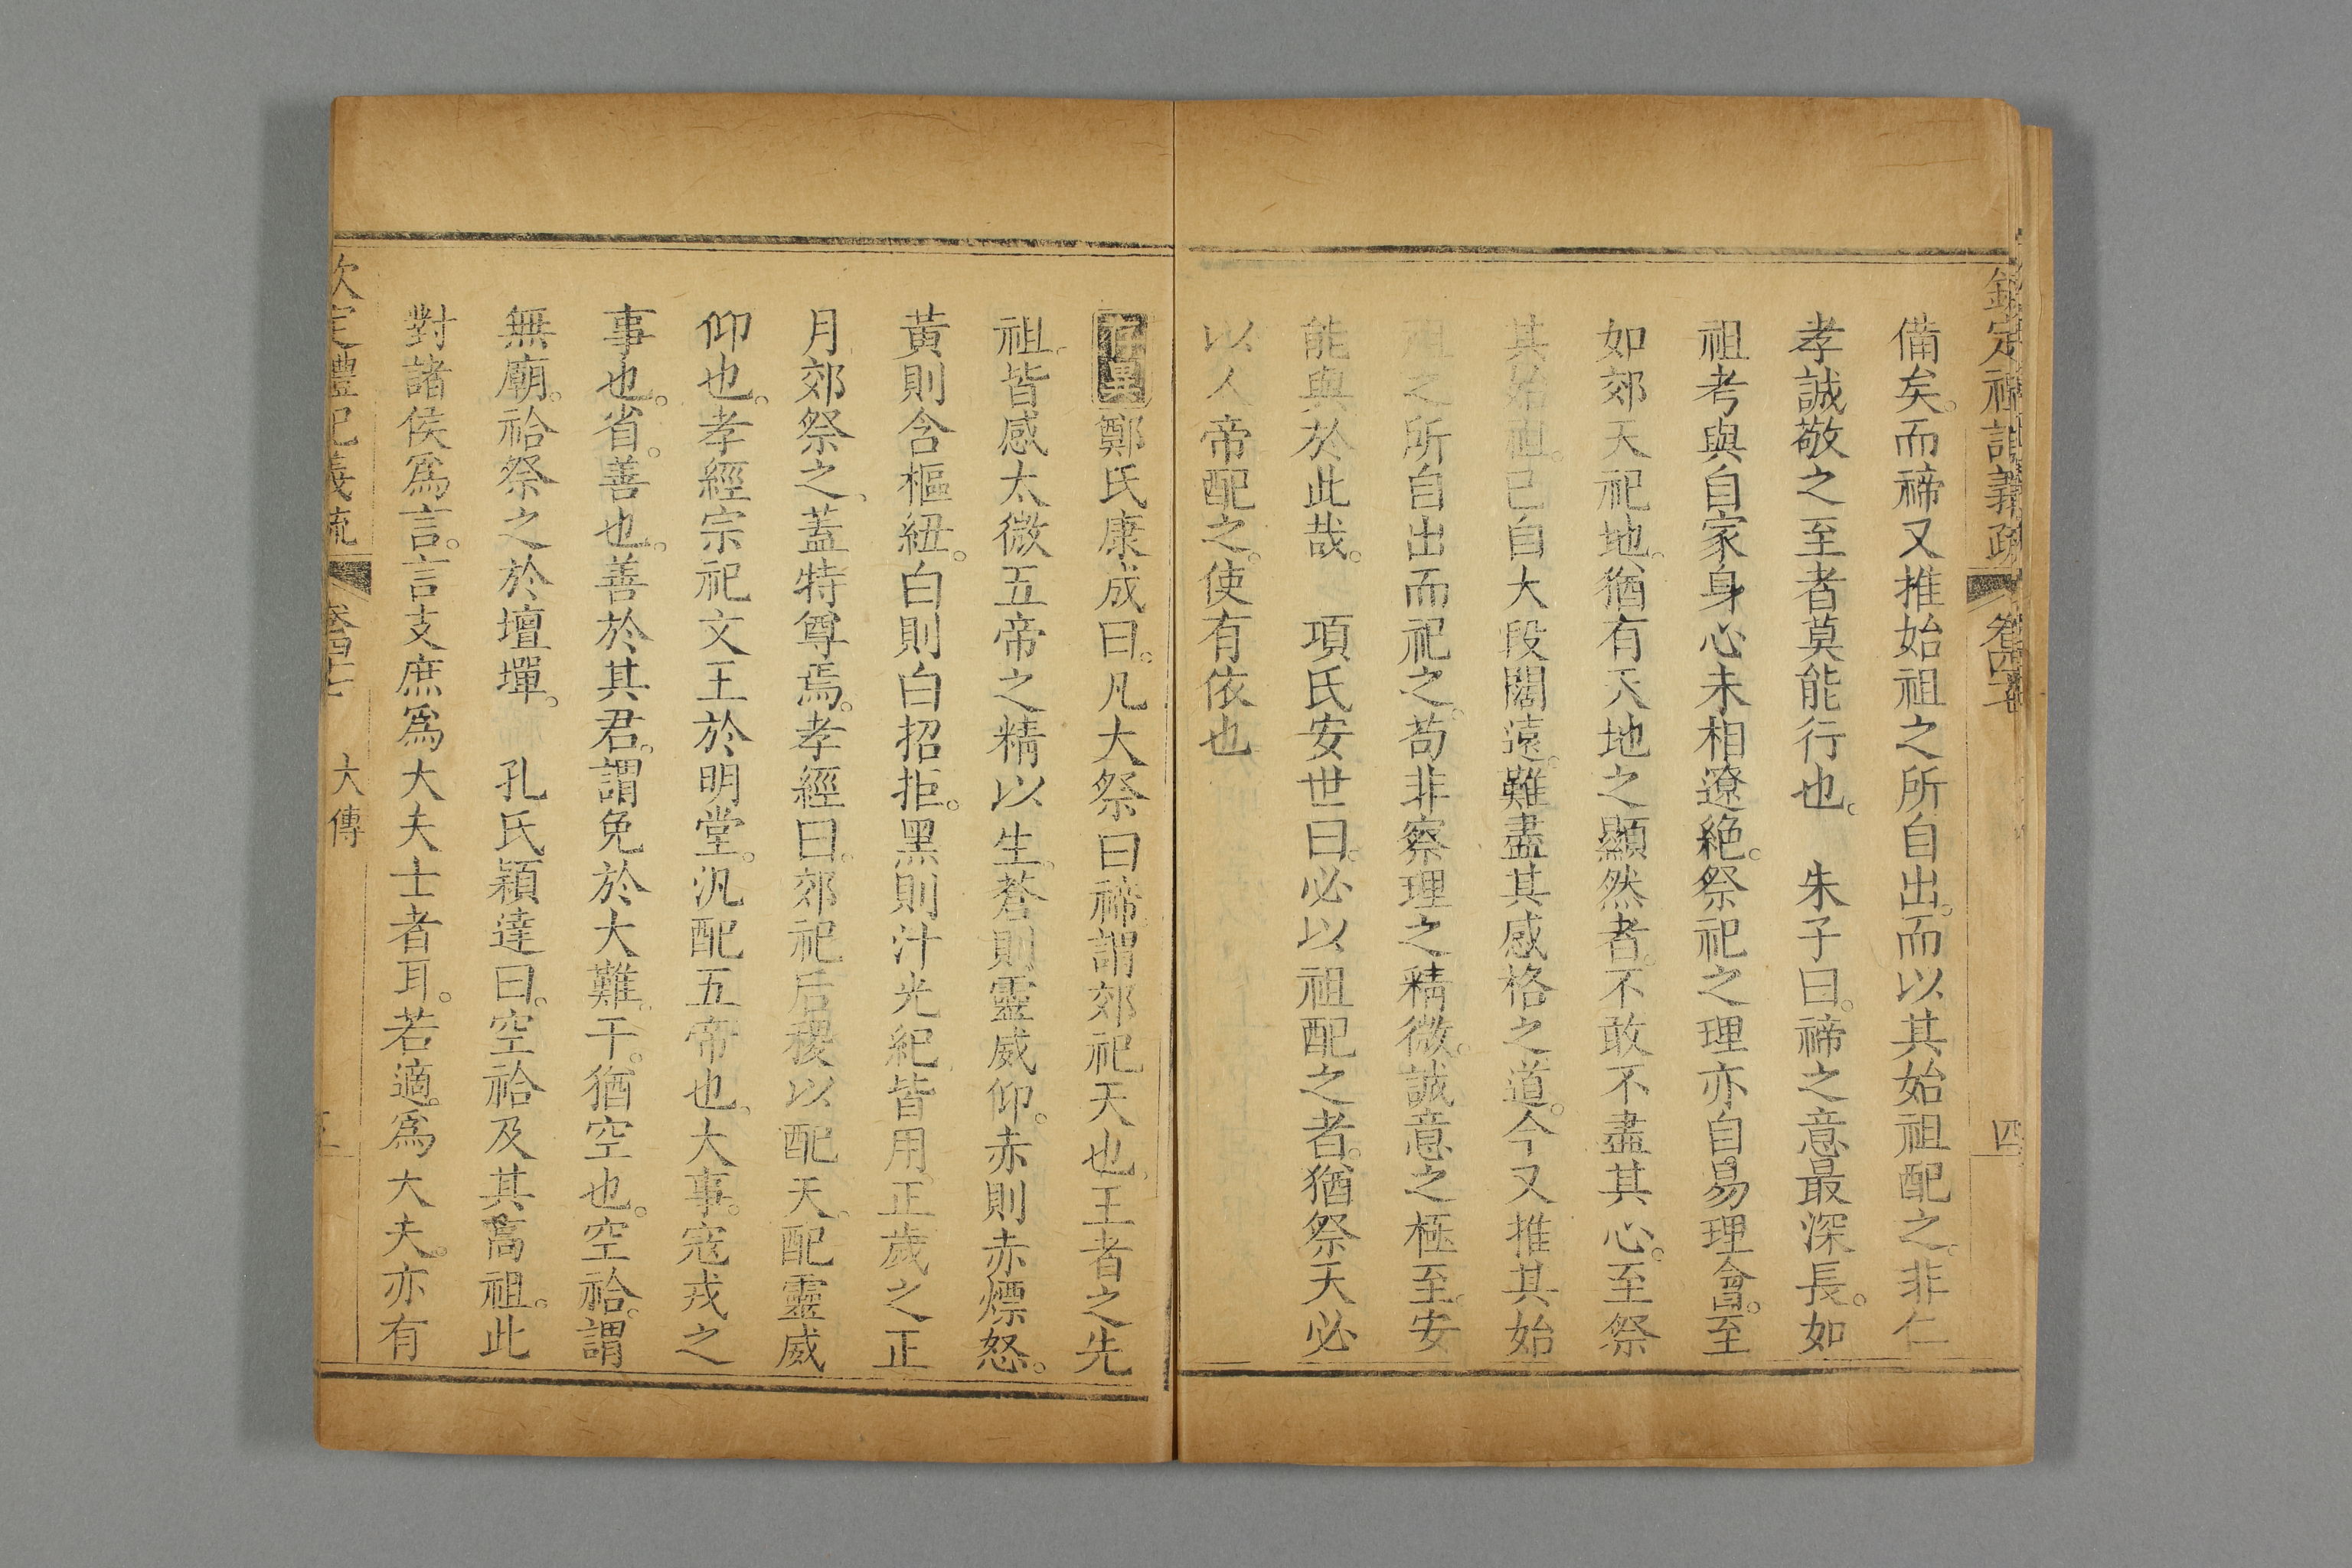 欽定禮記義疏 卷四十七 四
備矣。而禘又推始祖之所自出。而以其始祖配之。非仁
孝誠敬之至者莫能行也。 朱子曰。禘之意最深長。如
祖考與自家身心未相遼絶。祭祀之理亦自易理會。至
如郊天祀地。猶有天地之顯然者。不敢不盡其心。至祭
其始祖。已自大段闊遠。難盡其感格之道。今又推其始
祖之所自出而祀之。苟非察理之精微。誠意之極至。安
能與於此哉。 項氏安世曰。必以祖配之者。猶祭天必
以人帝配之。使有依也
鄭氏康成曰。凡大祭曰禘。謂郊祀天也。王者之先
祖。皆感太微五帝之精以生。蒼則靈威仰。赤則赤熛怒。
黃則含樞紐。白則白招拒。黑則汁光紀。皆用正歲之正
月郊祭之、蓋特尊焉。孝經曰。郊祀后稷以配天。配靈威
仰也。孝經宗祀文王於明堂。汎配五帝也、大事。寇戎之
事也。省。善也。善於其君。謂免於大難。干。猶空也。空祫。謂
無廟。祫祭之於壇墠。 孔氏穎達曰。空祫及其高祖。此
對諸侯爲言。言支庶爲大夫士者耳。若適爲大夫。亦有
欽定禮記義疏 卷四十七 大傳 五